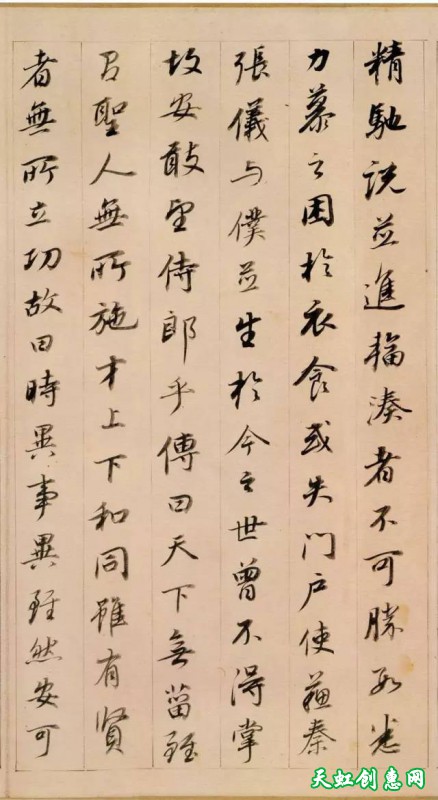 精馳說並進輻湊者不可勝數悉
力慕之困於衣食或失門戶使蘇秦
張儀与僕並生於今之世曾不得掌
故安敢望侍郎乎傳曰天下無菑雖
有聖人無所施才上下和同雖有賢
者無所立功故曰時異事異雖然安可
天虹创惠网